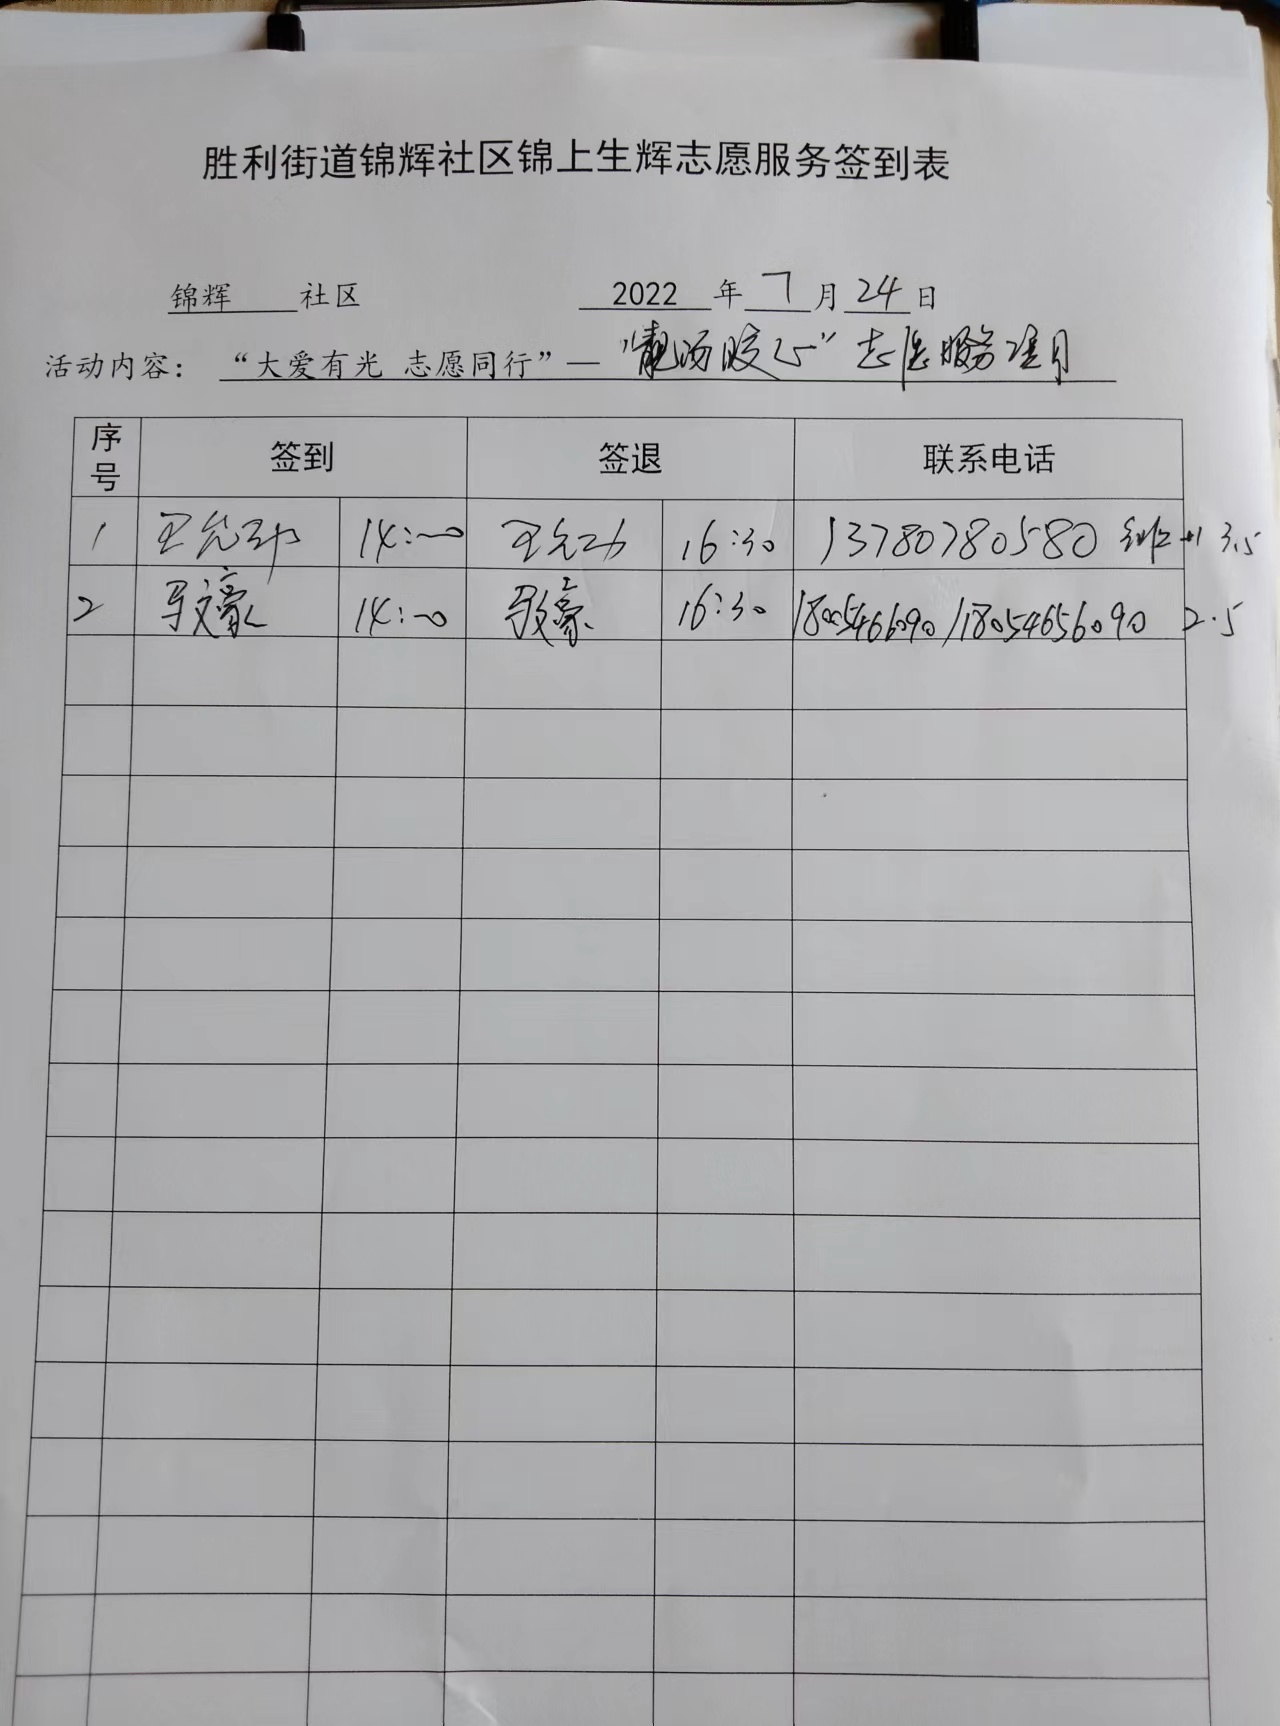 胜利街道锦辉社区锦上生辉志愿服务签到表
锦辉 社区 2022 年 7 月 24 日
活动内容: “大爱有光 志愿同行”— “靓汤暖心”志愿服务项目
序号 签到 签退 联系电话
1 14:00 16:30 13780780580 +1 3.5
2 马文豪 14:00 马文豪 16:30 /18054656090 2.5